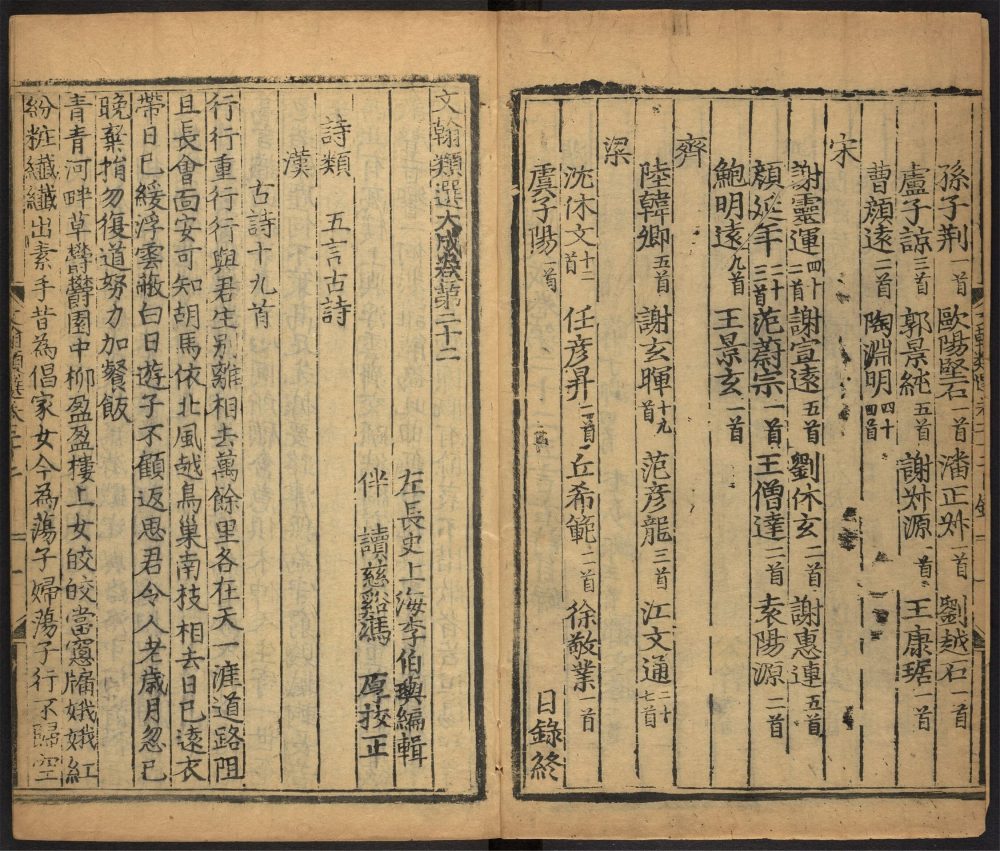 孫子荆一首 歐陽堅石一首 潘正叔一首 劉越石一首
盧子諒三首 郭景純五首 謝叔源一首 王康琚一首
曹顔遠二首 陶淵明四十四首
宋
謝靈運四十二首 謝宣遠五首 劉休玄二首 謝惠連五首
顔延年二十二首 范蔚宗一首 王僧達二首 袁陽源二首
鮑明遠九首 王景玄一首
齊
陸韓卿五首 謝玄暉十九首 范彦龍三首 江文通二十七首
梁
沈休文十二首 任彦昇二首 丘希範二首 徐敬業一首
虞子陽一首 目錄終
文翰類選大成卷第二十二
左長史上海李伯璵編輯
伴讀慈谿馮厚挍正
詩類 五言古詩
漢
古詩十九首
行行重行行與君生別離相去萬餘里各在天一涯道路阻
且長會面安可知胡馬依北風越鳥巢南枝相去日已遠衣
帶日已緩浮雲蔽白日遊子不顧返思君令人老歲月忽已
晚棄捐勿復道努力加餐飯
青青河畔草鬱鬱園中柳盈盈樓上女皎皎當窻牖娥娥紅
紛粧纎纎出素手昔為倡家女今為蕩子婦蕩子行不歸空